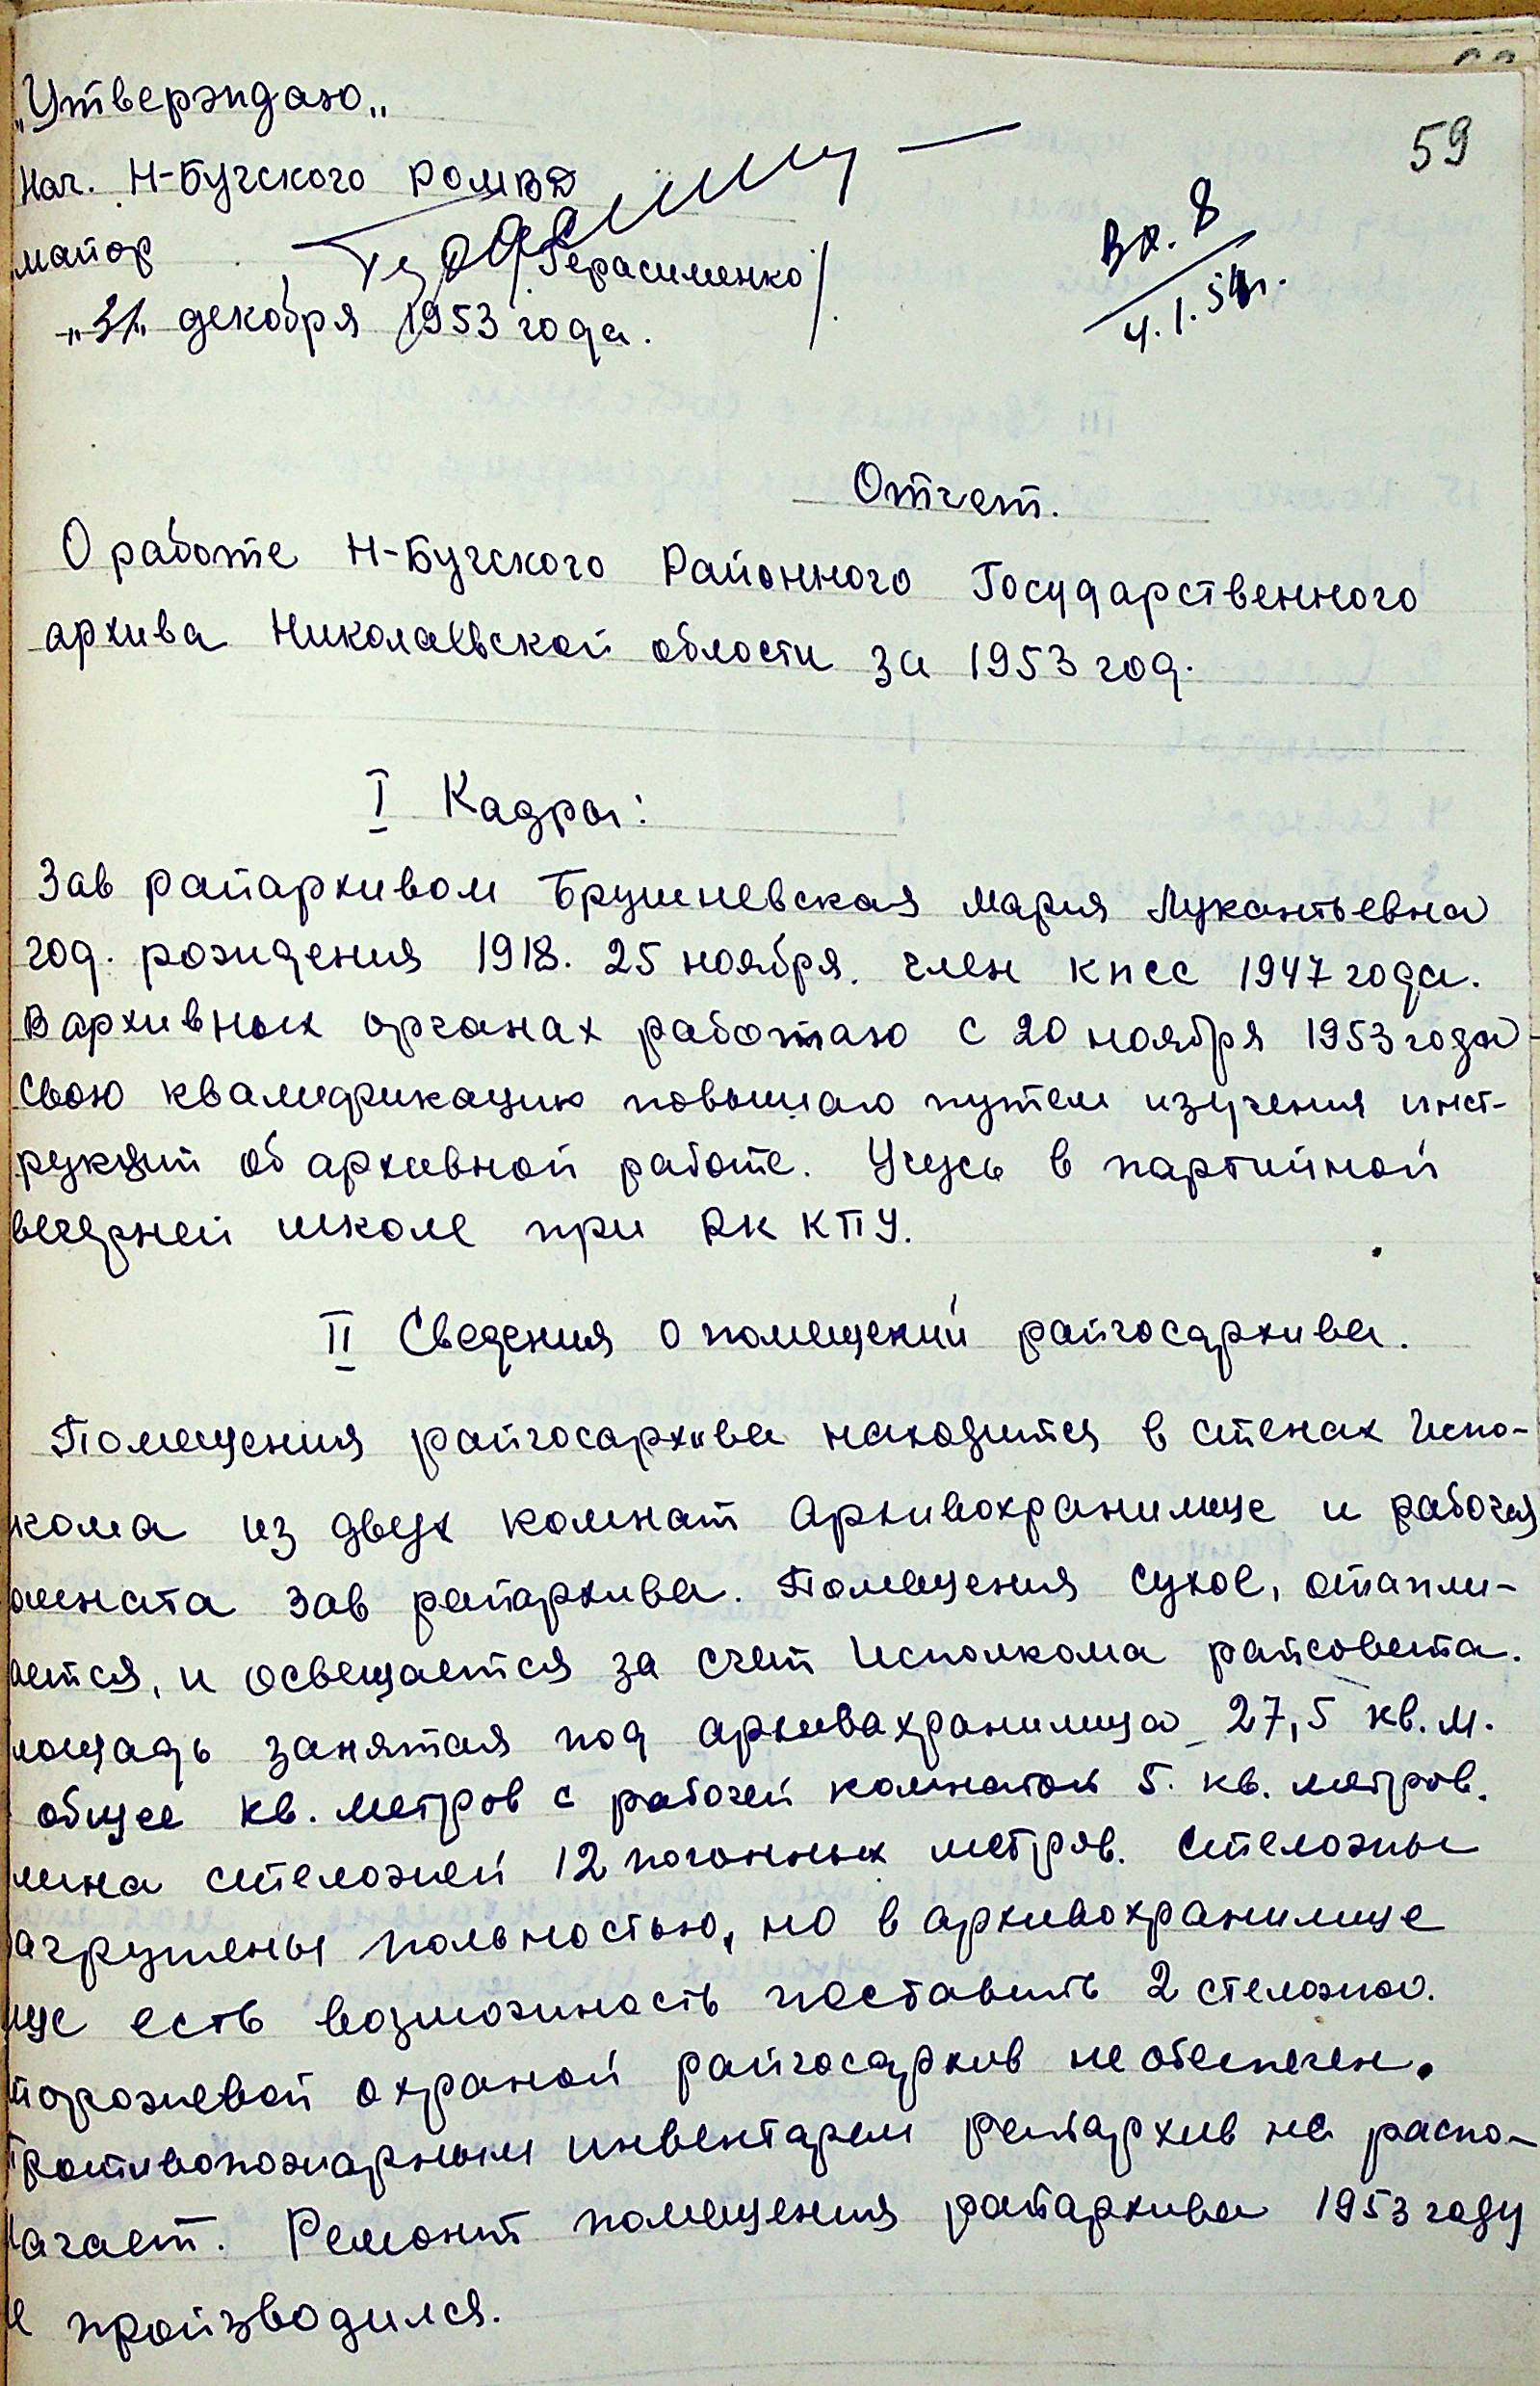 59
„Утверждаю„
Нач. Н-Бугского РОМВД
майор /Герасименко/
„31„ декабря 1953 года.
Вх. 8
4.1.54г.
Отчет.
О работе Н-Бугского Районного Государственного
архива Николаевской области за 1953 год.
I Кадры:
Зав райархивом Брушневская Мария Лукантьевна
год. рождения 1918. 25 ноября. член КПСС 1947 года.
В архивных органах работаю с 20 ноября 1953 года
свою квалификацию повышаю путем изучения инст-
рукций об архивной работе. Учусь в партийной
вечерней школе при РК КПУ.
II Сведения о помещений райгосархива.
Помещения райгосархива находится в стенах Испо-
кома из двух комнат Архивохранилище и рабочая
омната Зав райархива. Помещения сухое, отапли-
ается, и освещается за счет Исполкома райсовета.
лощадь занятая под архивахранилища 27,5 кв.м.
общее кв. метров с рабочей комнатой 5. кв. метров.
лина стеложей 12 погонных метров. Стеложы
агружены польностью, но в архивохранилище
ще есть возможность поставить 2 стелажа.
торожевой охраной райгосархив не обеспечен.
Противопожарным инвентарем райархив не распо-
лагает. Ремонт помещения райархива 1953 году
е производился.